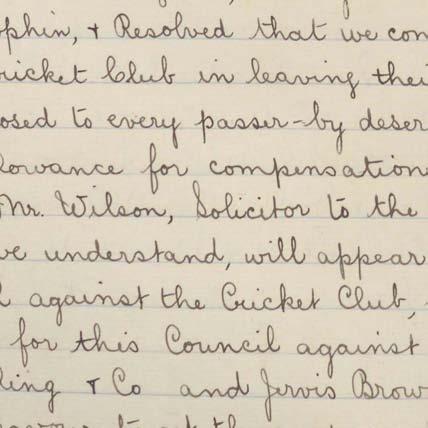 ophin, & Resolved that we con
ricket Club in leaving thei
osed to every passer-by deser
lowance for compensation
Mr. Wilson, Solicitor to the
ve understand, will appear
l against the Cricket Club,
for this Council against
ling & Co and Jervis Brow